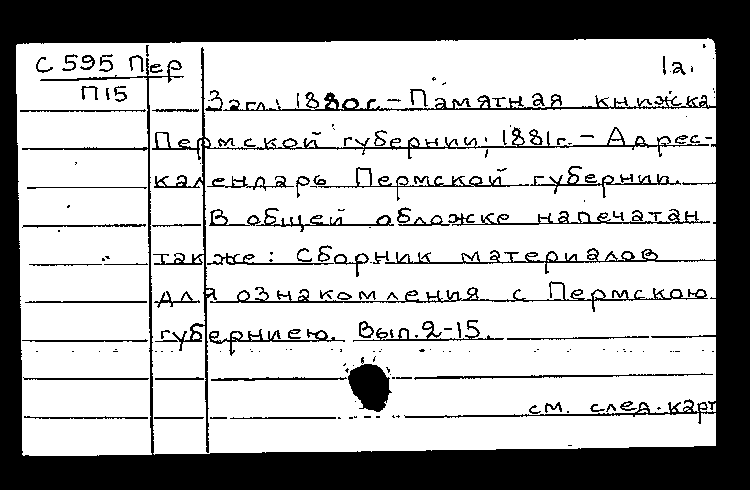 С 595 Пер 1а.
П15
Загл.: 1880г. - Памятная книжка
Пермской губернии; 1881г. - Адрес-
календарь Пермской губернии.
В общей обложке напечатан
также: Сборник материалов
для ознакомления с Пермскою
губерниею. Вып. 2-15.
см. след. карт